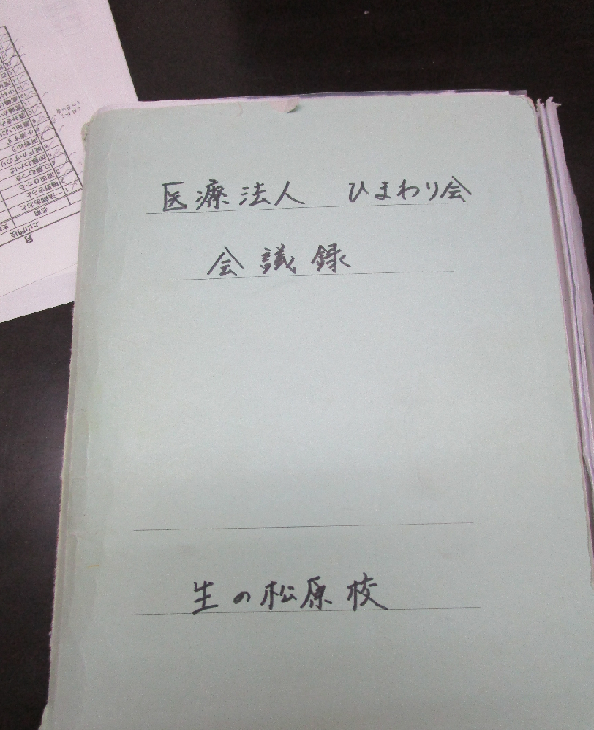 医療法人 ひまわり会
会議録
生の松原校